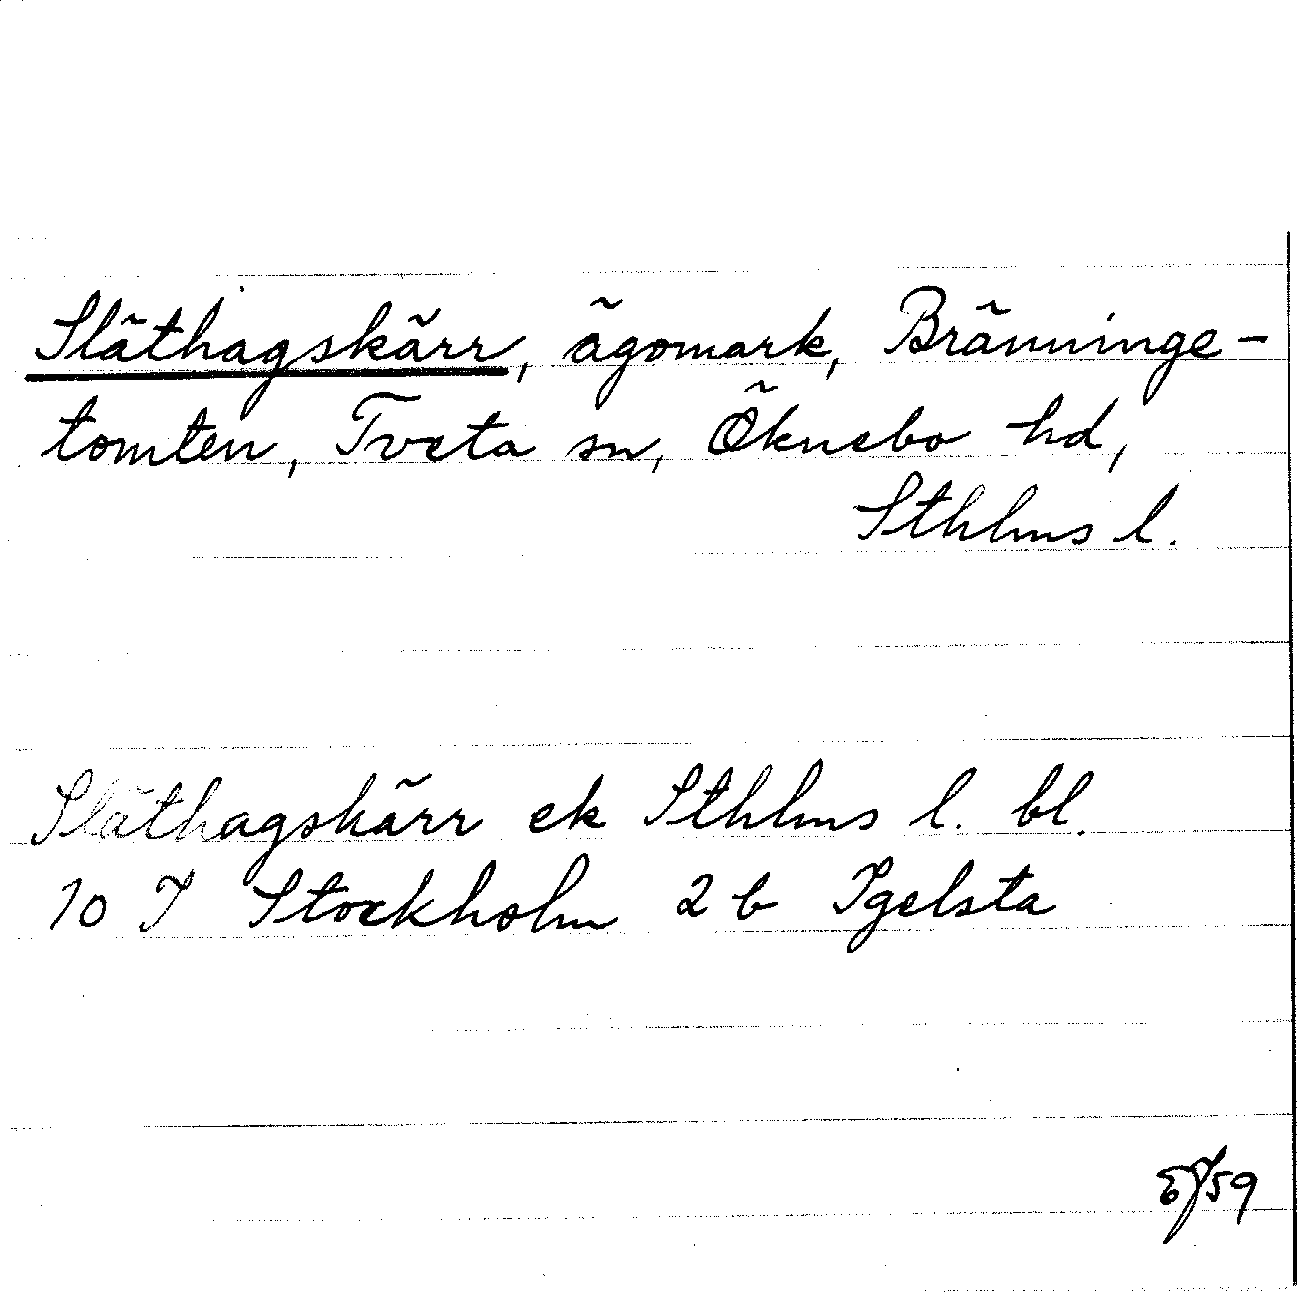 Släthagskärr, ägomark, Bränninge-
tomten, Tveta sn, Öknebo hd,
Sthlms l.
Släthagskärr ek Sthlms l. bl.
10 I Stockholm 2 b Igelsta
59